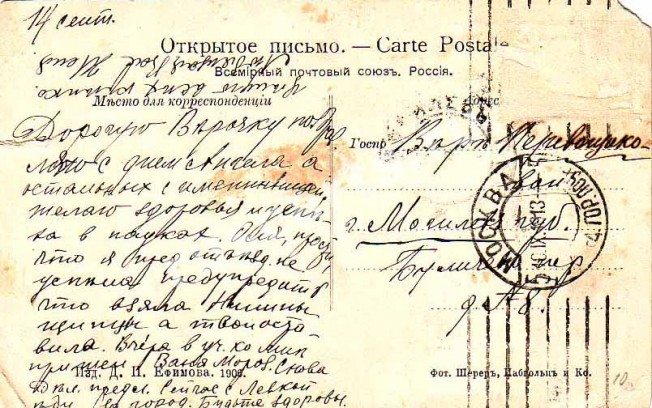 14 сент.
Открытое письмо. — Carte Postale
Всемірный почтовый союзъ. Россия.
Мѣсто для корреспонденціи
Адрес
Дорогую Верочку поздр
ляю с днем Ангела а
остальных с именинницей,
желаю здоровья и успе
ха в науках. Оля, прости
что я пред отъездом не
успела предупредить
что взяла Нинины
щипцы а твои оста
вила. Вчера в уч. ко мне
пришел Ваня Мороз. Снова
дел. предл. Сейчас с Левкой
за город. Будьте здоровы.
Госп
Вѣрѣ Перевощико-
вой
г. Могилев губ.
пер.
д. № 8.
МОСКВА
13
Изд. Д. П. Ефимова. 1904.
Фот. Шереръ, Набгольцъ и Ко.
10